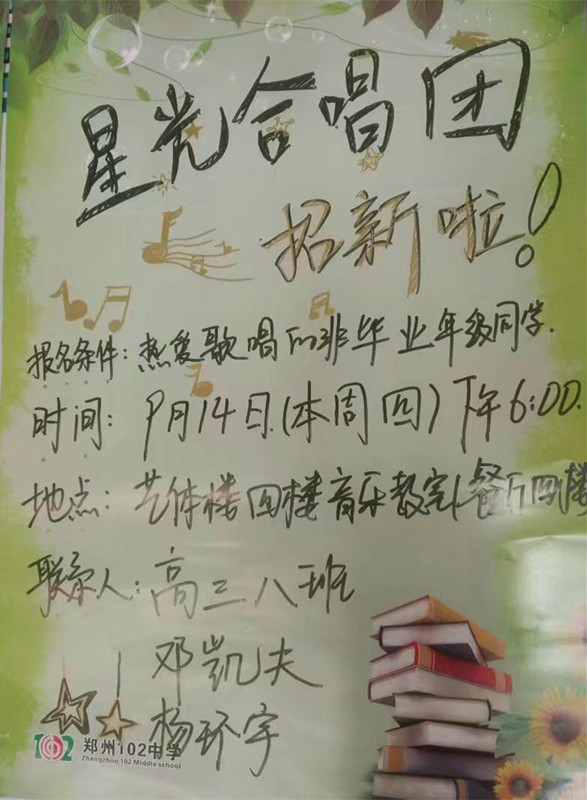 星光合唱团
招新啦!
报名条件:热爱歌唱的非毕业年级同学.
时间:9月14日.(本周四)下午6:00.
地点:艺体楼四楼音乐教室(餐厅四楼
联系人:高三八班
邓凯夫
杨环宇
102 郑州102中学
Zhengzhou 102 Middle school